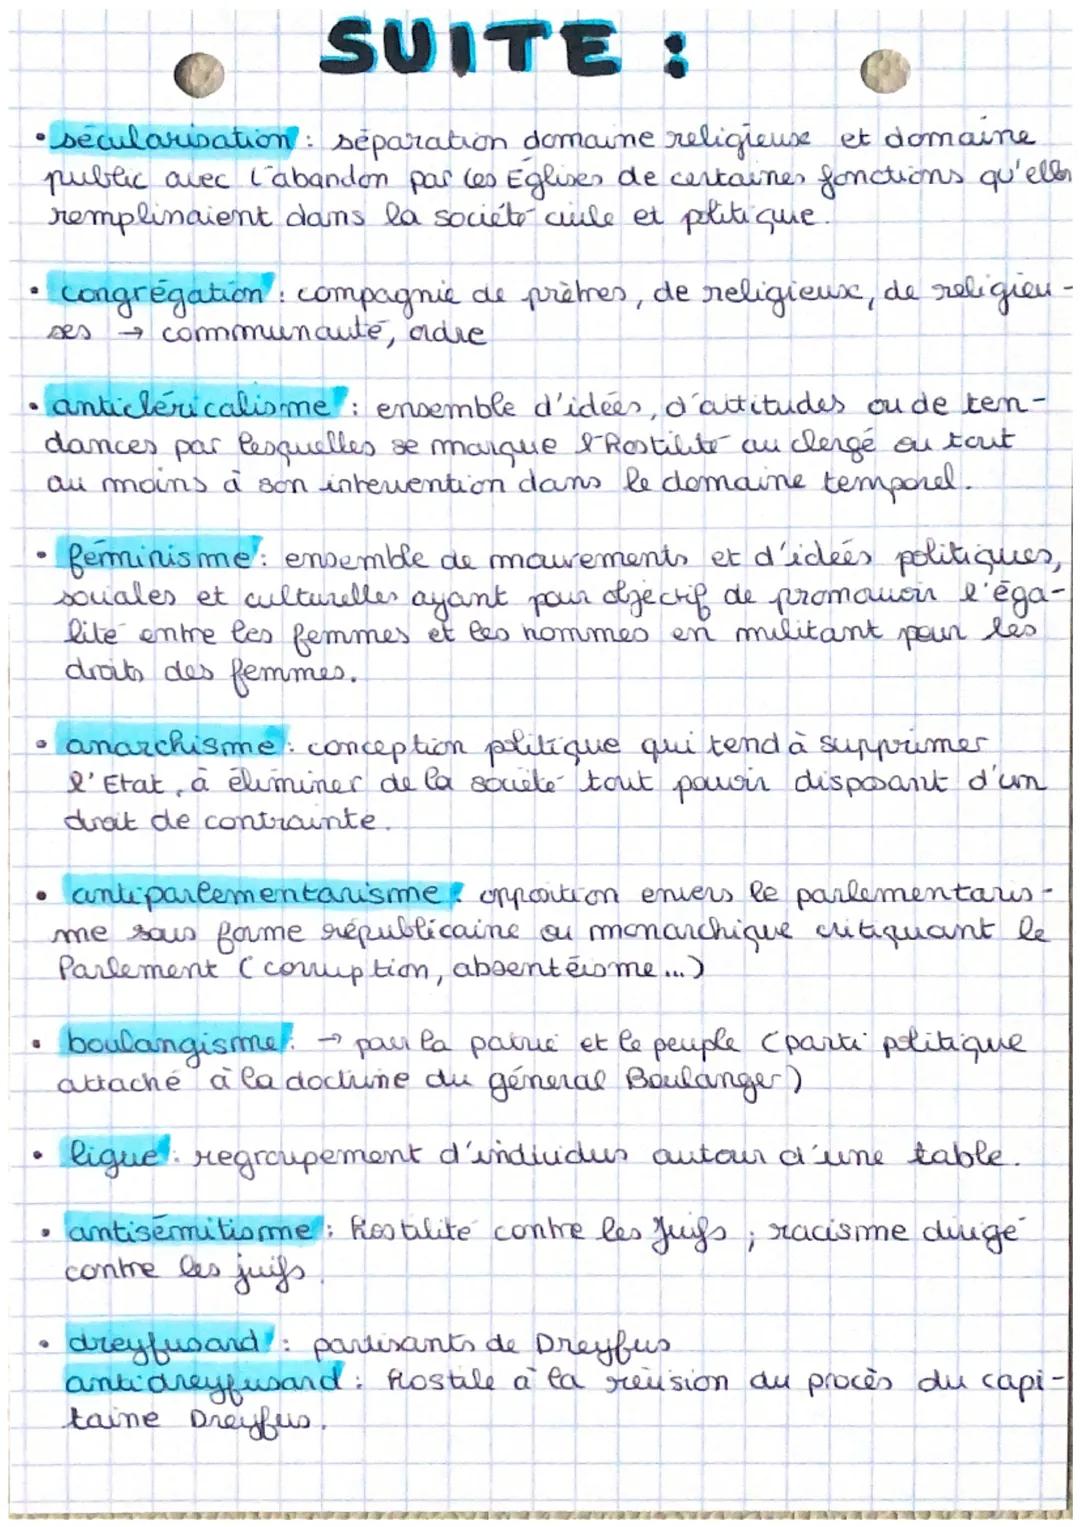 SUITE :
• sécularisation : séparation domaine religieux et domaine
public avec l'abandon par les Églises de certaines fonctions qu'elles
remplinaient dans la société civile et politique.
• congrégation : compagnie de prêtres, de religieux, de religieu-
ses → communauté, ordre
• anticléricalisme : ensemble d'idées, d'attitudes ou de ten-
dances par lesquelles se marque l'hostilité au clergé ou tout
au moins à son intervention dans le domaine temporel.
• féminisme : ensemble de mouvements et d'idées politiques,
sociales et culturelles ayant pour objectif de promouvoir l'éga-
lité entre les femmes et les hommes en militant pour les
droits des femmes.
• anarchisme : conception politique qui tend à supprimer
l'Etat, à éliminer de la société tout pouvoir disposant d'un
droit de contrainte.
• antiparlementarisme : opposition envers le parlementaris-
me sous forme républicaine ou monarchique critiquant le
Parlement (corruption, absentéisme...)
• boulangisme : → pour la patrie et le peuple (parti politique
attaché à la doctrine du général Boulanger)
• ligue : regroupement d'individus autour d'une table.
• antisémitisme : hostilité contre les Juifs ; racisme dirigé
contre les juifs.
• dreyfusard : partisants de Dreyfus
antidreyfusard : hostile à la révision du procès du capi-
taine Dreyfus.